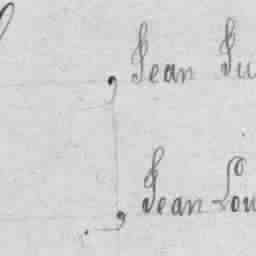 Jean
Jean-Lou